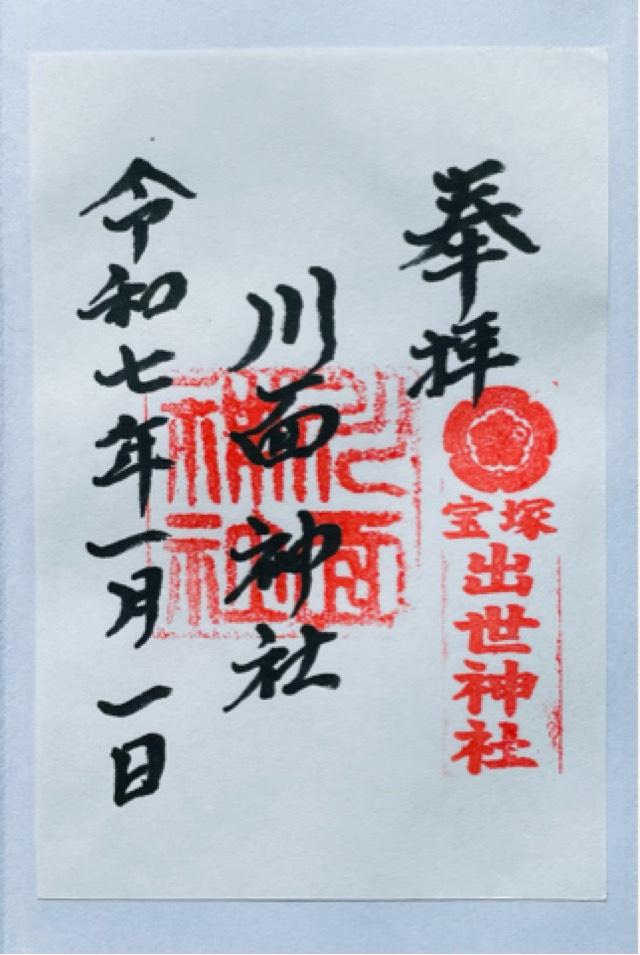 奉拝
宝塚
出世神社
川面神社
令和七年一月一日